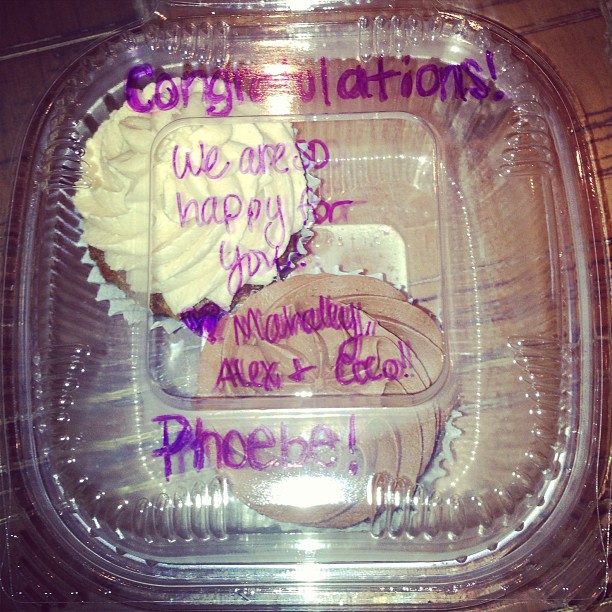 Congratulations!
We are so
happy for
you!!
♥ Mahalley,
Alex + Coco!!
Phoebe!